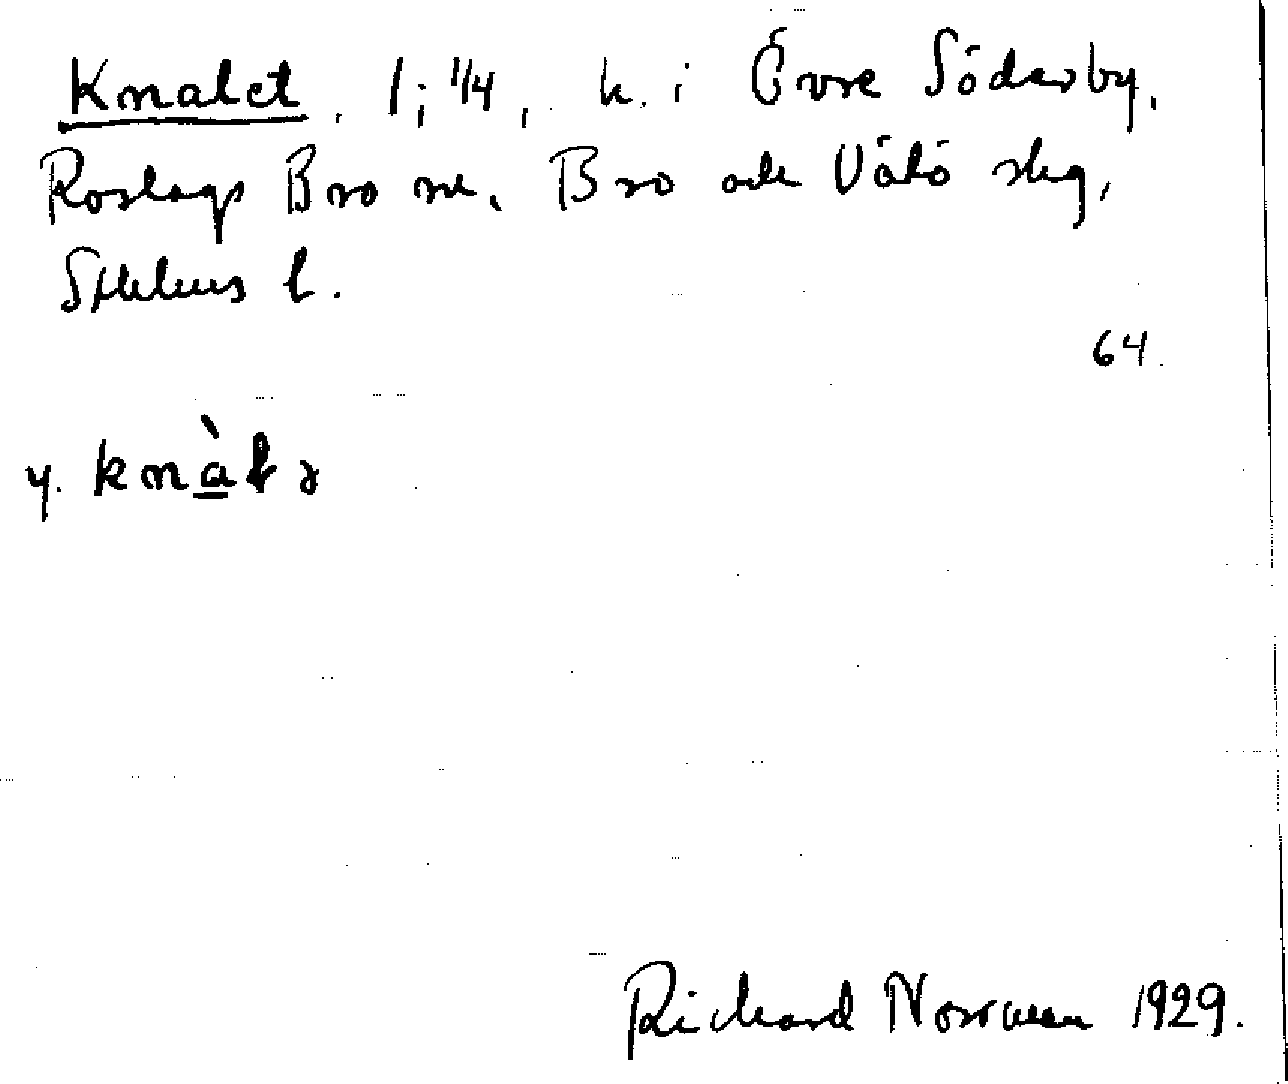 Knalet, 1; 1/4, h. i Övre Söderby,
Roslags Bro sn. Bro och Vätö skg,
Sthlms l.
64.
y. knàlə
Richard Norrman 1929.